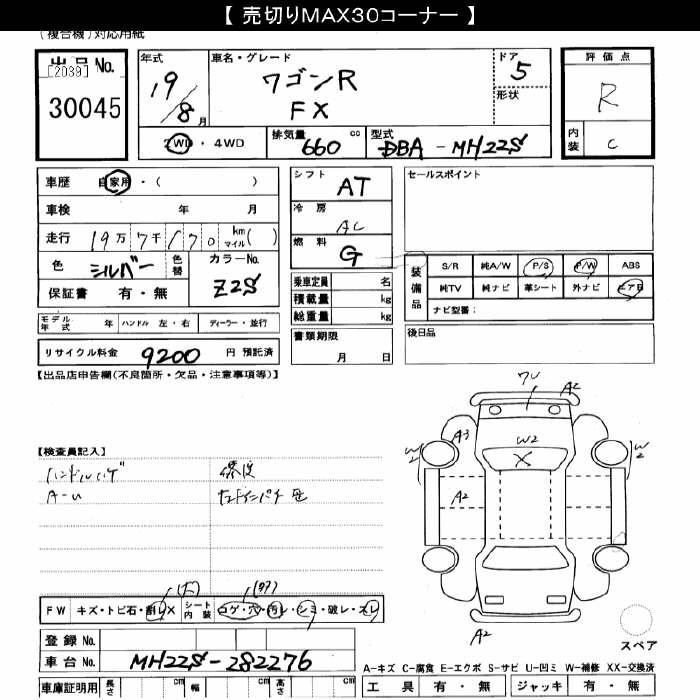 【 売切りMAX30コーナー 】
(複合機)対応用紙
出品 No.
[2039]
30045
年式
19/8月
車名・グレード
ワゴンR
FX
ドア
5
形状
評価点
R
内装
C
2WD・4WD
排気量 660 cc
型式 DBA - MH22S
車歴 自家用・( )
車検 年 月
走行 19万7千170 km マイル( )
色 シルバー 色替
カラーNo.
Z2S
保証書 有・無
シフト
AT
冷房
AC
燃料
G
乗車定員 名
積載量 kg
総重量 kg
セールスポイント
装備品
S/R 純A/W P/S P/W ABS
純TV 純ナビ 革シート 外ナビ エアB
ナビ型番:
モデル年式 年 ハンドル 左・右 ディーラー・並行
書類期限
月 日
後日品
リサイクル料金 9200 円 預託済
【出品店申告欄(不良箇所・欠品・注意事項等)】
【検査員記入】
ハンドルハゲ
A-U
フU
A2
A3
W2
W2
W2
X
A2
A2
FW キズ・トビ石・割レX
シート内装 コゲ・穴・汚レ・シミ・破レ・スレ
登録 No.
車台 No. MH22S-282276
スペア
A-キズ C-腐食 E-エクボ S-サビ U-凹ミ W-補修 XX-交換済
車庫証明用 長さ cm 幅 cm 高さ cm
工具 有・無 ジャッキ 有・無